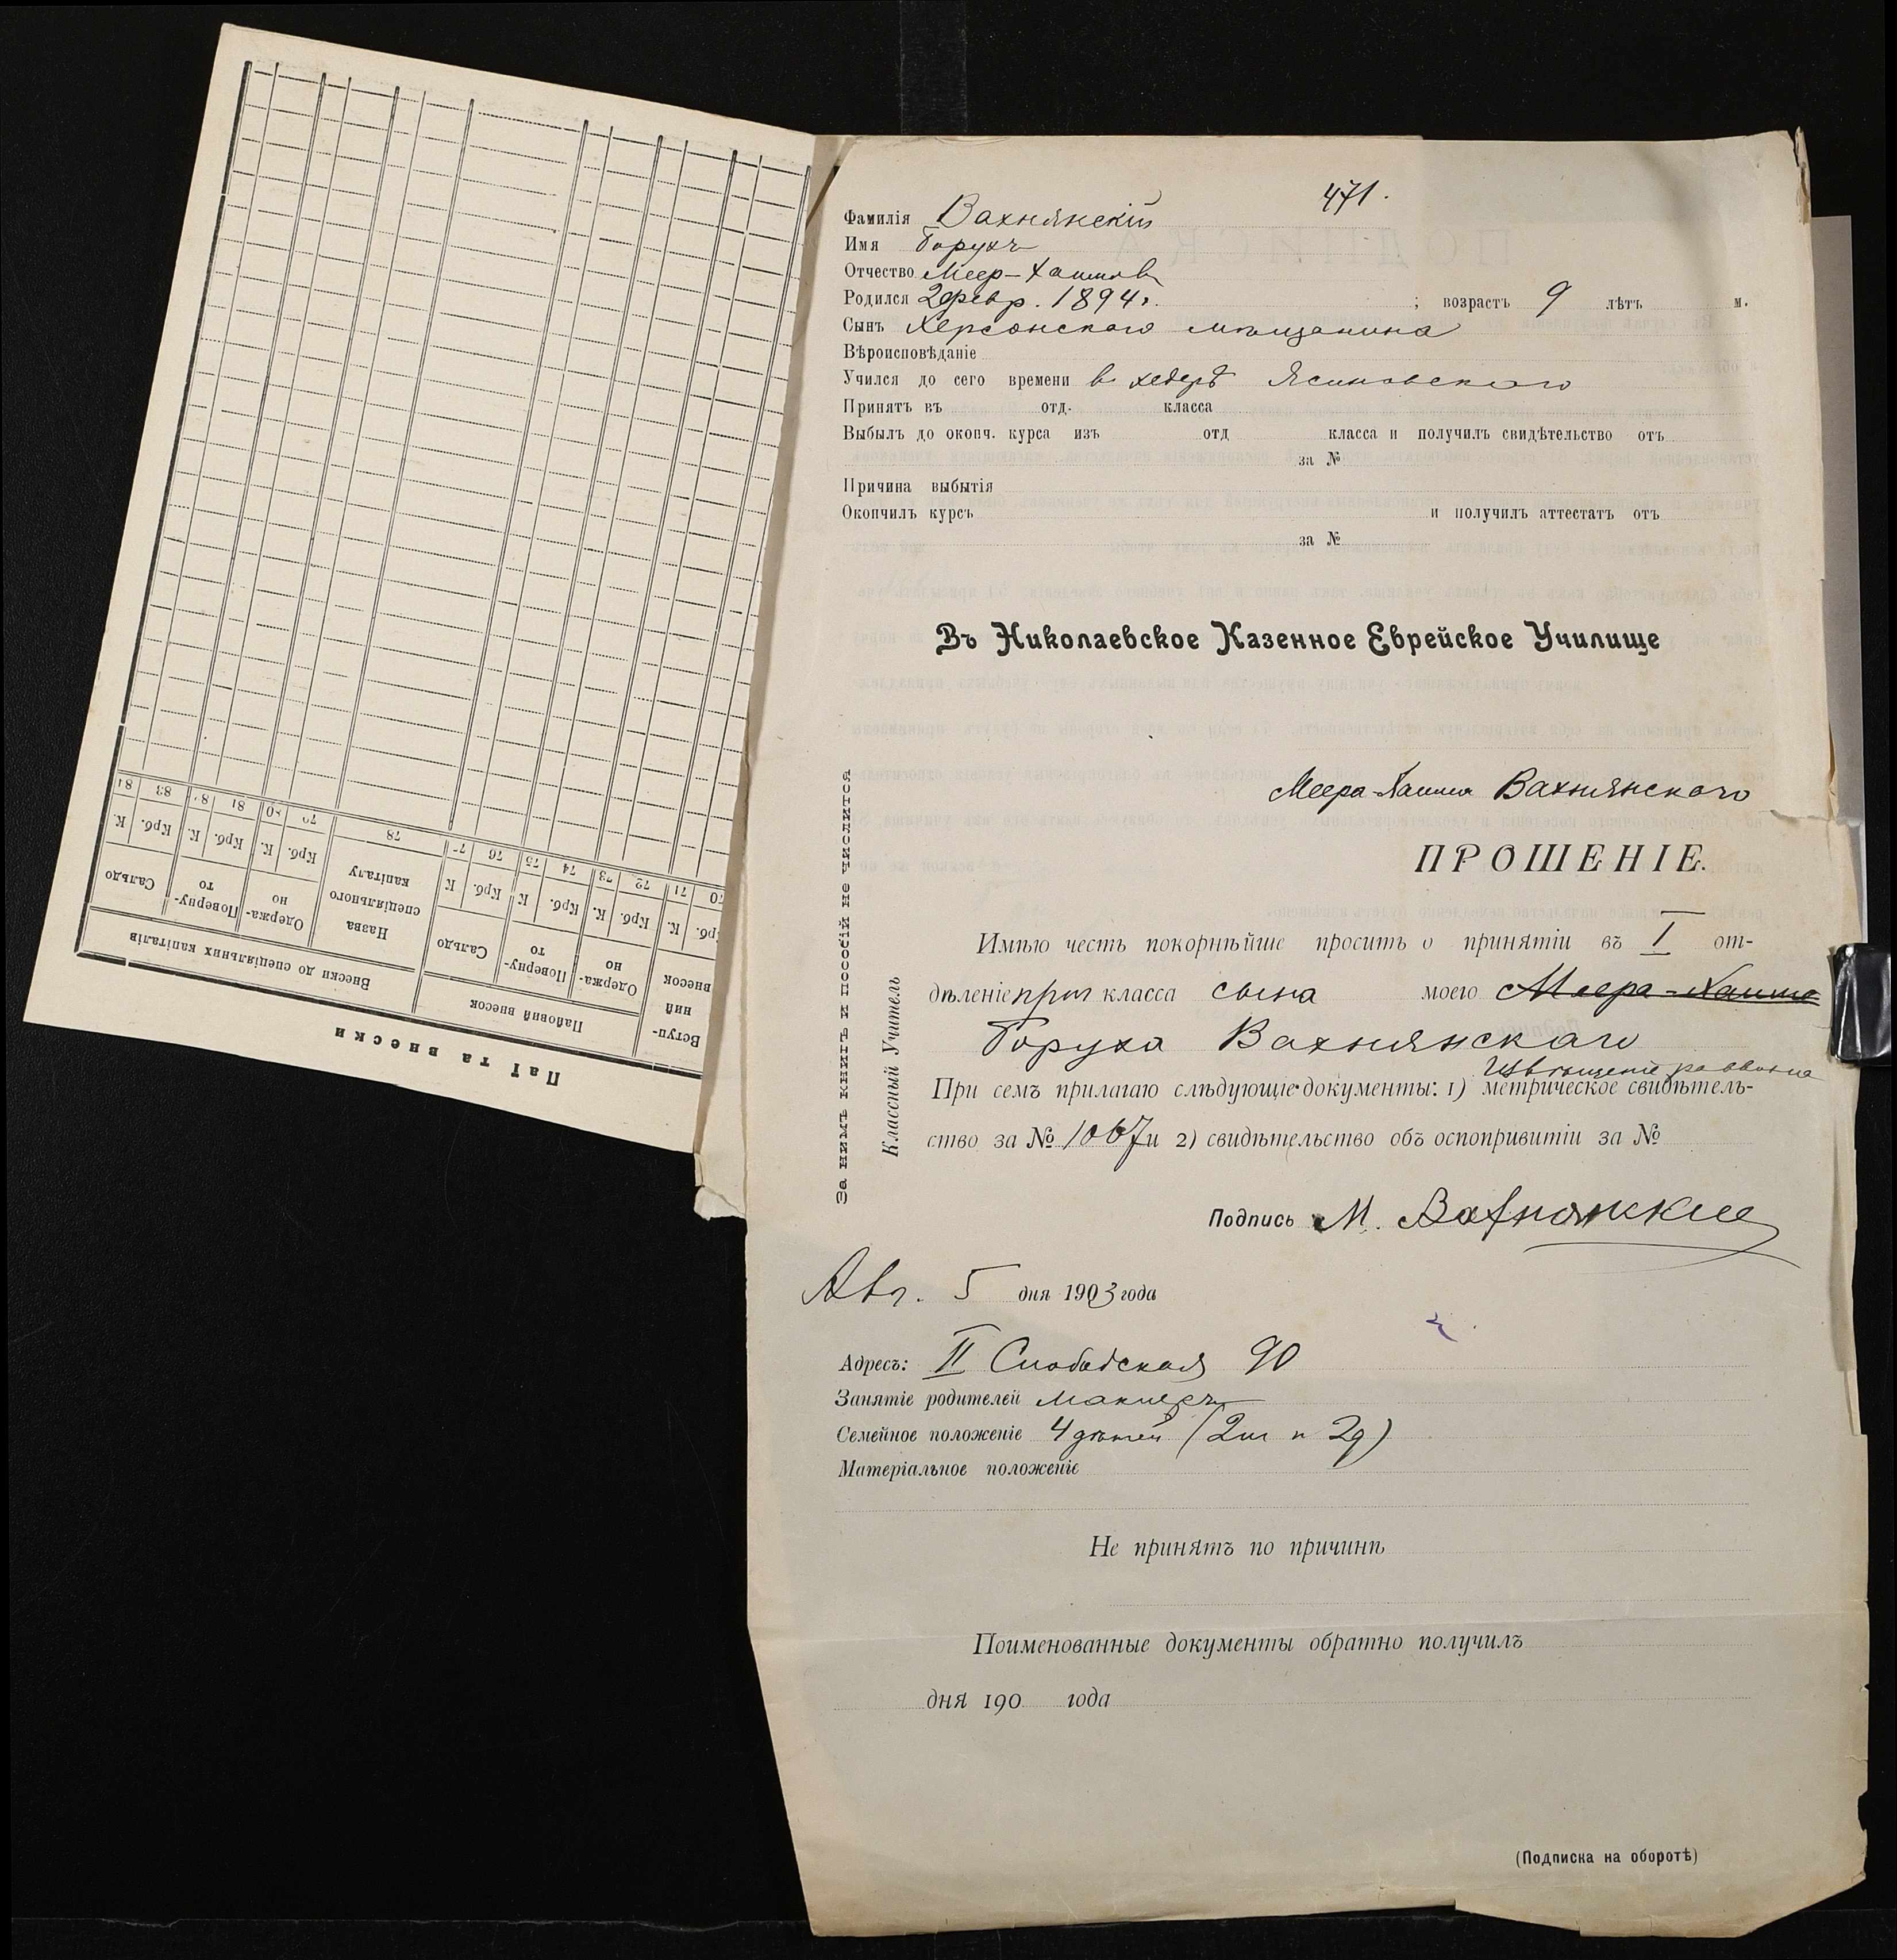 471.
Фамилія Вахнянскій
Имя Борухъ
Отчество Меер-Хаимов
Родился 2 февр. 1894 г. ; возрастъ 9 лѣтъ м.
Сынъ Херсонскаго мѣщанина
Вѣроисповѣданіе
Учился до сего времени в хедерѣ Ясиновскаго
Принятъ въ отд. класса
Выбылъ до оконч. курса изъ отд класса и получилъ свидѣтельство отъ
за №
Причина выбытія
Окончилъ курсъ и получилъ аттестатъ отъ
за №
Въ Николаевское Казенное Еврейское Училище
Меера-Хаима Вахнянскаго
ПРОШЕНІЕ.
Имѣю честь покорнѣйше просить о принятіи въ I от-
дѣленіе приг класса сына моего Меера-Хаима
Боруха Вахнянскаго
Извѣщеніе раввина
При семъ прилагаю слѣдующіе документы: 1) метрическое свидѣтель-
ство за № 1067 и 2) свидѣтельство объ оспопривитіи за №
Подпись М. Вахнянский
Авг. 5 дня 1903 года
Адресъ: II Слободская 90
Занятіе родителей маклеръ
Семейное положеніе 4 дѣтей (2 м и 2 д)
Матеріальное положеніе
Не принятъ по причинѣ
Поименованные документы обратно получилъ
дня 190 года
(Подписка на оборотѣ)
За нимъ книгъ и пособій не числится
Классный Учитель
Паї та внески
Вступ-
ний
внесок
Пайовий внесок
Внески до спеціяльних капіталів
Одержа-
но
Поверну-
то
Сальдо
Назва
спеціяльного
капіталу
Одержа-
но
Поверну-
то
Сальдо
Крб. К. Крб. К. Крб. К Крб. К Крб. К. Крб. К. Крб. К.
70 71 72 73 74 75 76 77 78 79 80 81 82 83 84